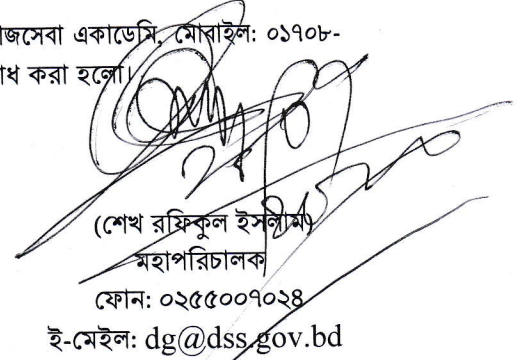 জসেবা একাডেমি, মোবাইল: ০১৭০৮-
ধ করা হলো।
(শেখ রফিকুল ইসলাম)
মহাপরিচালক
ফোন: ০২৫৫০০৭০২৪
ই-মেইল: dg@dss.gov.bd